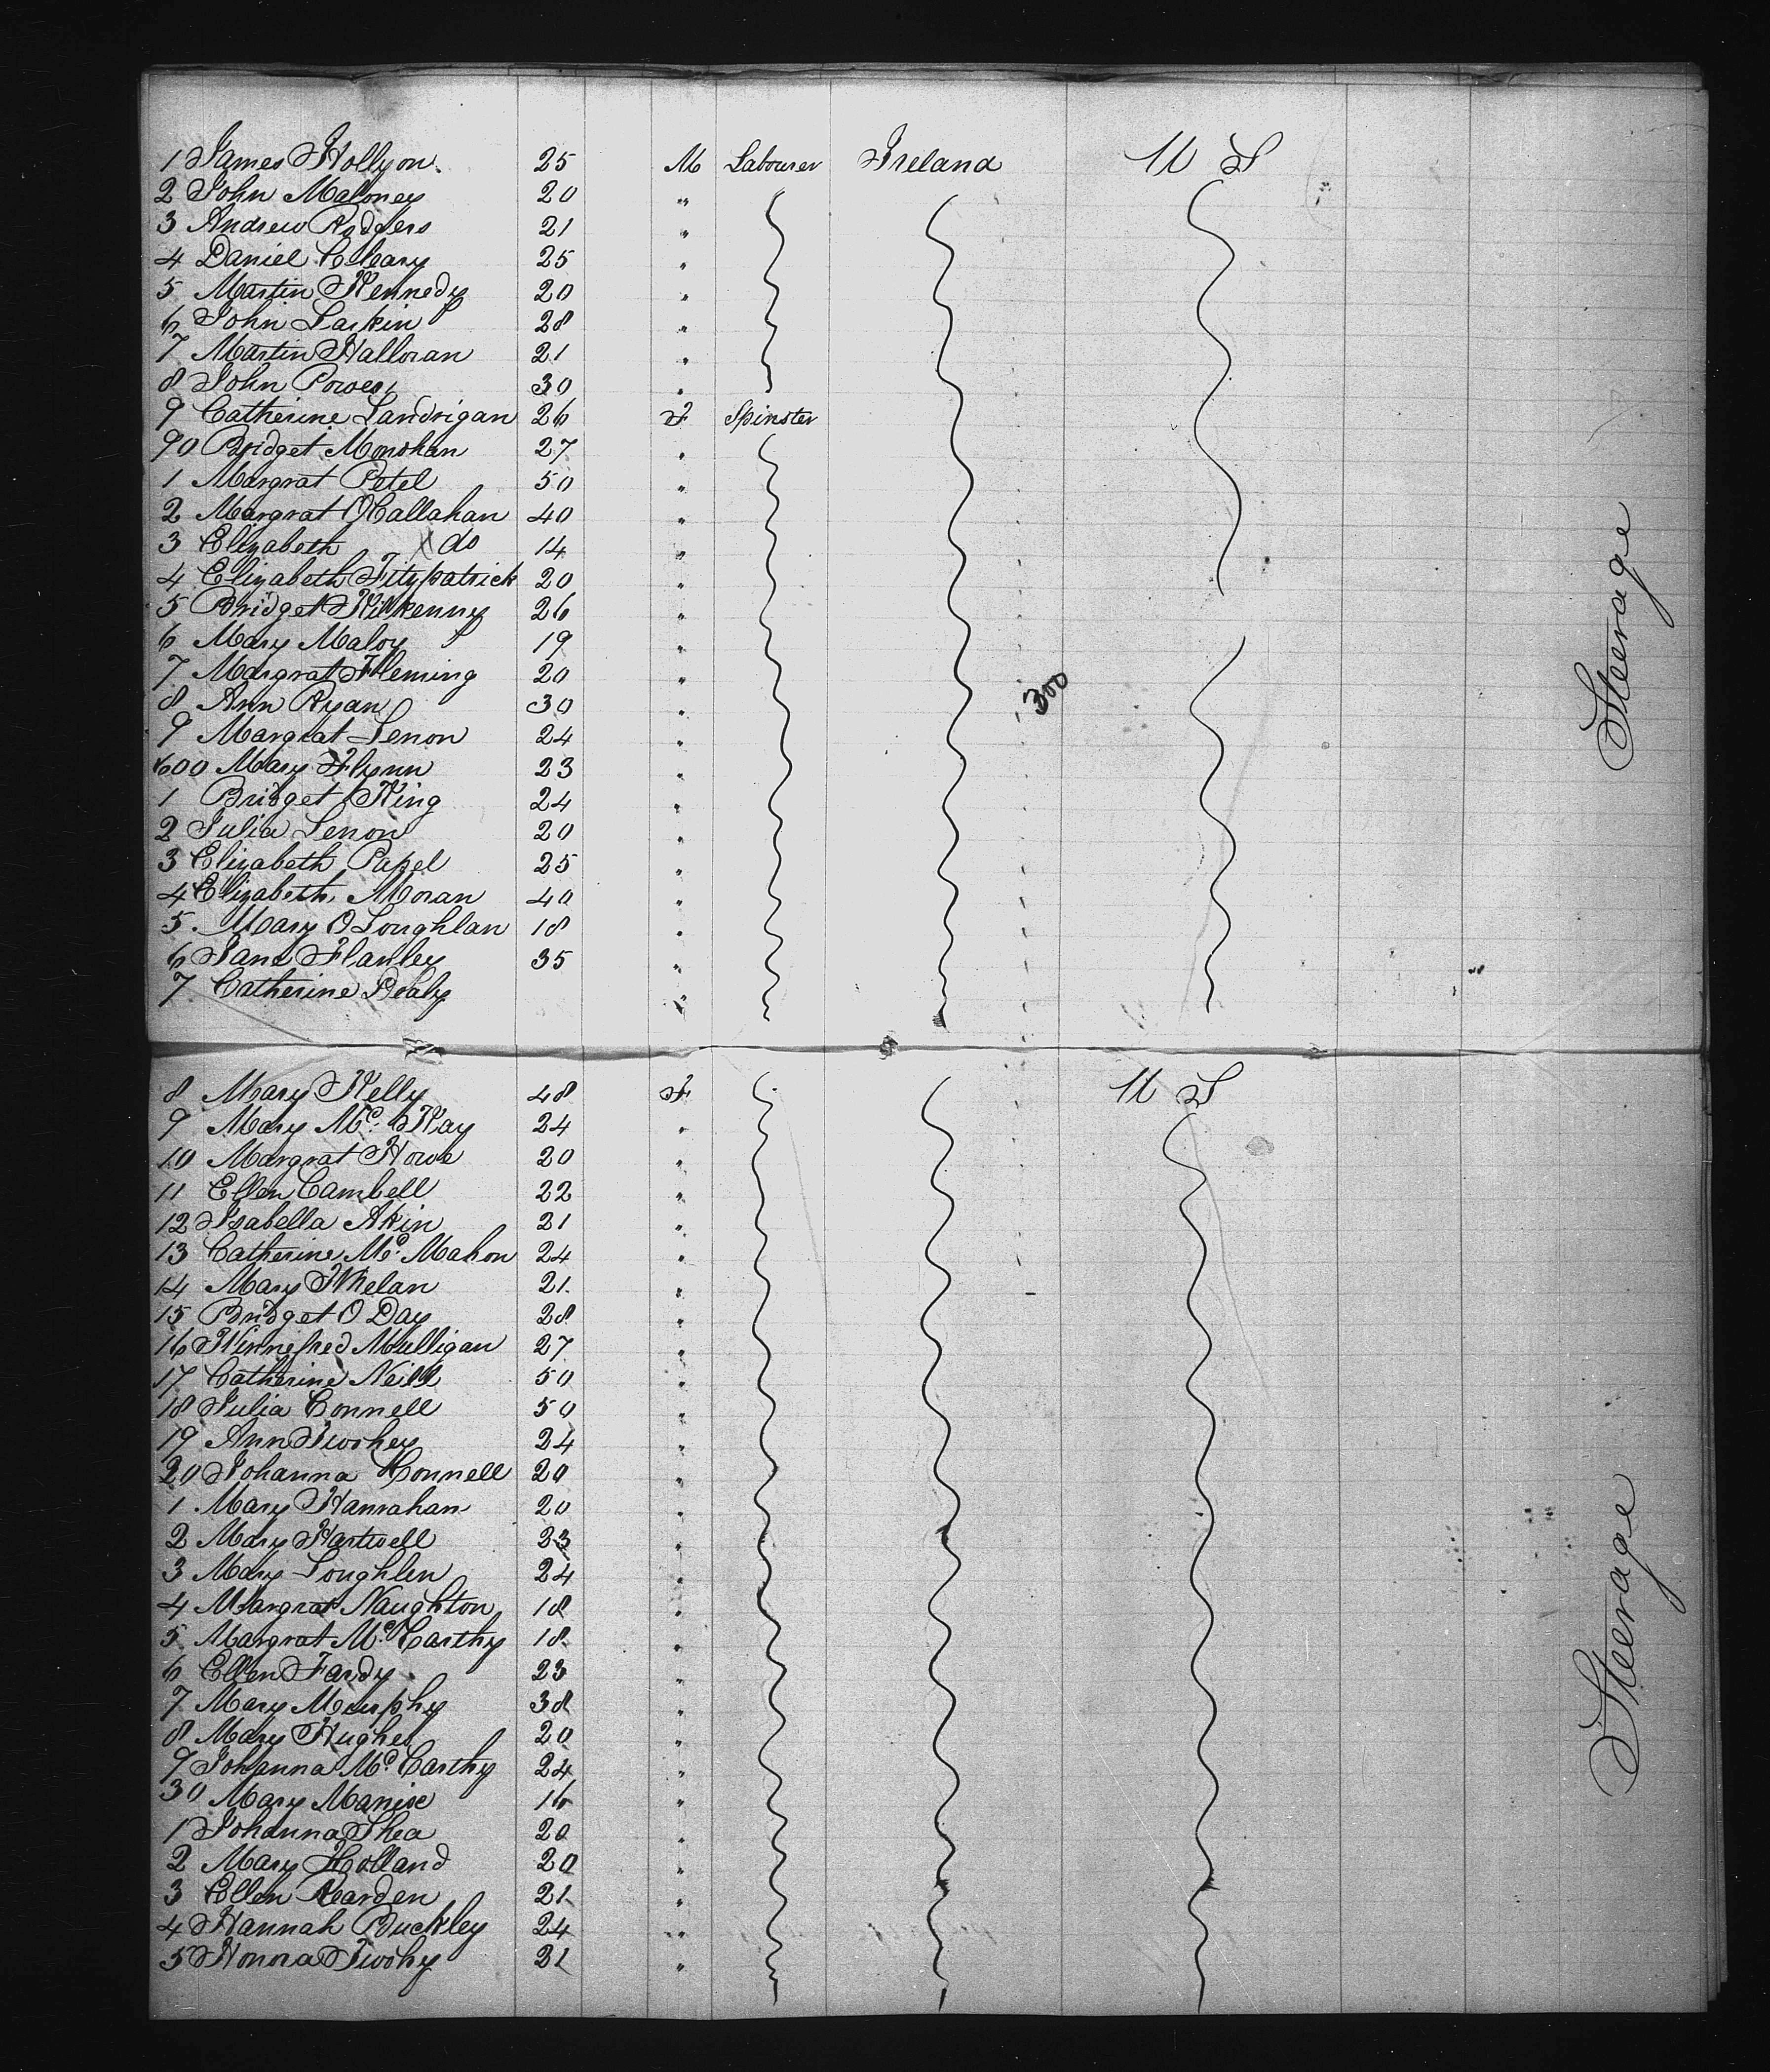 1 James Hollyon 25 M Labourer Ireland U S
2 John Maloney 20 "
3 Andrew Rodgers 21 "
4 Daniel Cleary 25 "
5 Martin Kennedy 20 "
6 John Larkin 28 "
7 Martin Halloran 21 "
8 John Power 30 "
9 Catherine Landrigan 26 F Spinster
90 Bridget Monohan 27 "
1 Margrat Petel 50 "
2 Margrat O Callahan 40 "
3 Elizabeth X do 14 "
4 Elizabeth Fitzpatrick 20 "
5 Bridget Kilkenny 26 "
6 Mary Maloy 19 "
7 Margrat Fleming 20 "
8 Ann Ryan 30 "
300
9 Margrat Lenon 24 "
600 Mary Flynn 23 "
1 Bridget King 24 "
2 Julia Lenon 20 "
3 Elizabeth Papel 25 "
4 Elizabeth Moran 40 "
5 Mary O Loughlan 18 "
6 Jane Flanley 35 "
7 Catherine Dealy "
Steerage
8 Mary Kelly 48 F U S
9 Mary Mc Kay 24 "
10 Margrat Howe 20 "
11 Ellen Cambell 22 "
12 Isabella Akin 21 "
13 Catherine Mc Mahon 24 "
14 Mary Whelan 21 "
15 Bridget O Day 28 "
16 Winnefred Mulligan 27 "
17 Catherine Neill 50 "
18 Julia Connell 50 "
19 Ann Twohey 24 "
20 Johanna Connell 20 "
1 Mary Hanrahan 20 "
2 Mary Hartwell 23 "
3 Mary Loughlen 24 "
4 Margrat Naughton 18 "
5 Margrat Mc Carthy 18 "
6 Ellen Fardy 23 "
7 Mary Murphy 38 "
8 Mary Hughes 20 "
9 Johanna Mc Carthy 24 "
30 Mary 16 "
1 Johanna Shea 20 "
2 Mary Holland 20 "
3 Ellen Rearden 21 "
4 Hannah Buckley 24 "
5 Honora Twohy 21 "
Steerage